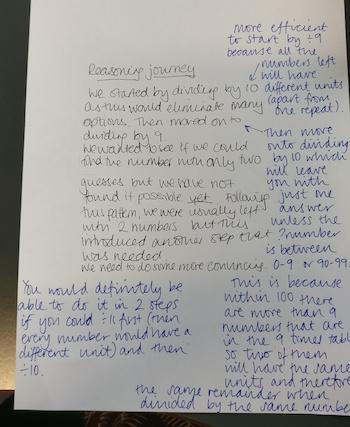 more efficient
to start by ÷9
because all the
numbers left
will have
different units
(apart from
one repeat).
Reasoning journey
We started by dividing by 10
as this would eliminate many
options. Then moved on to
dividing by 9
We wanted to see if we could
find the number with only two
guesses but we have not
found it possible yet. Following
this pattern, we were usually left
with 2 numbers but this
introduced another step that
was needed
We need to do some more convincing.
Then move
onto dividing
by 10 which
will leave
you with
just one
answer
unless the
?number
is between
0-9 or 90-99.
You would definitely be
able to do it in 2 steps
if you could ÷11 first (then
every number would have a
different unit) and then
÷10.
This is because
within 100 there
are more than 9
numbers that are
in the 9 times tabl
so two of them
will have the same
units and therefore
the same remainder when
divided by the same numbe